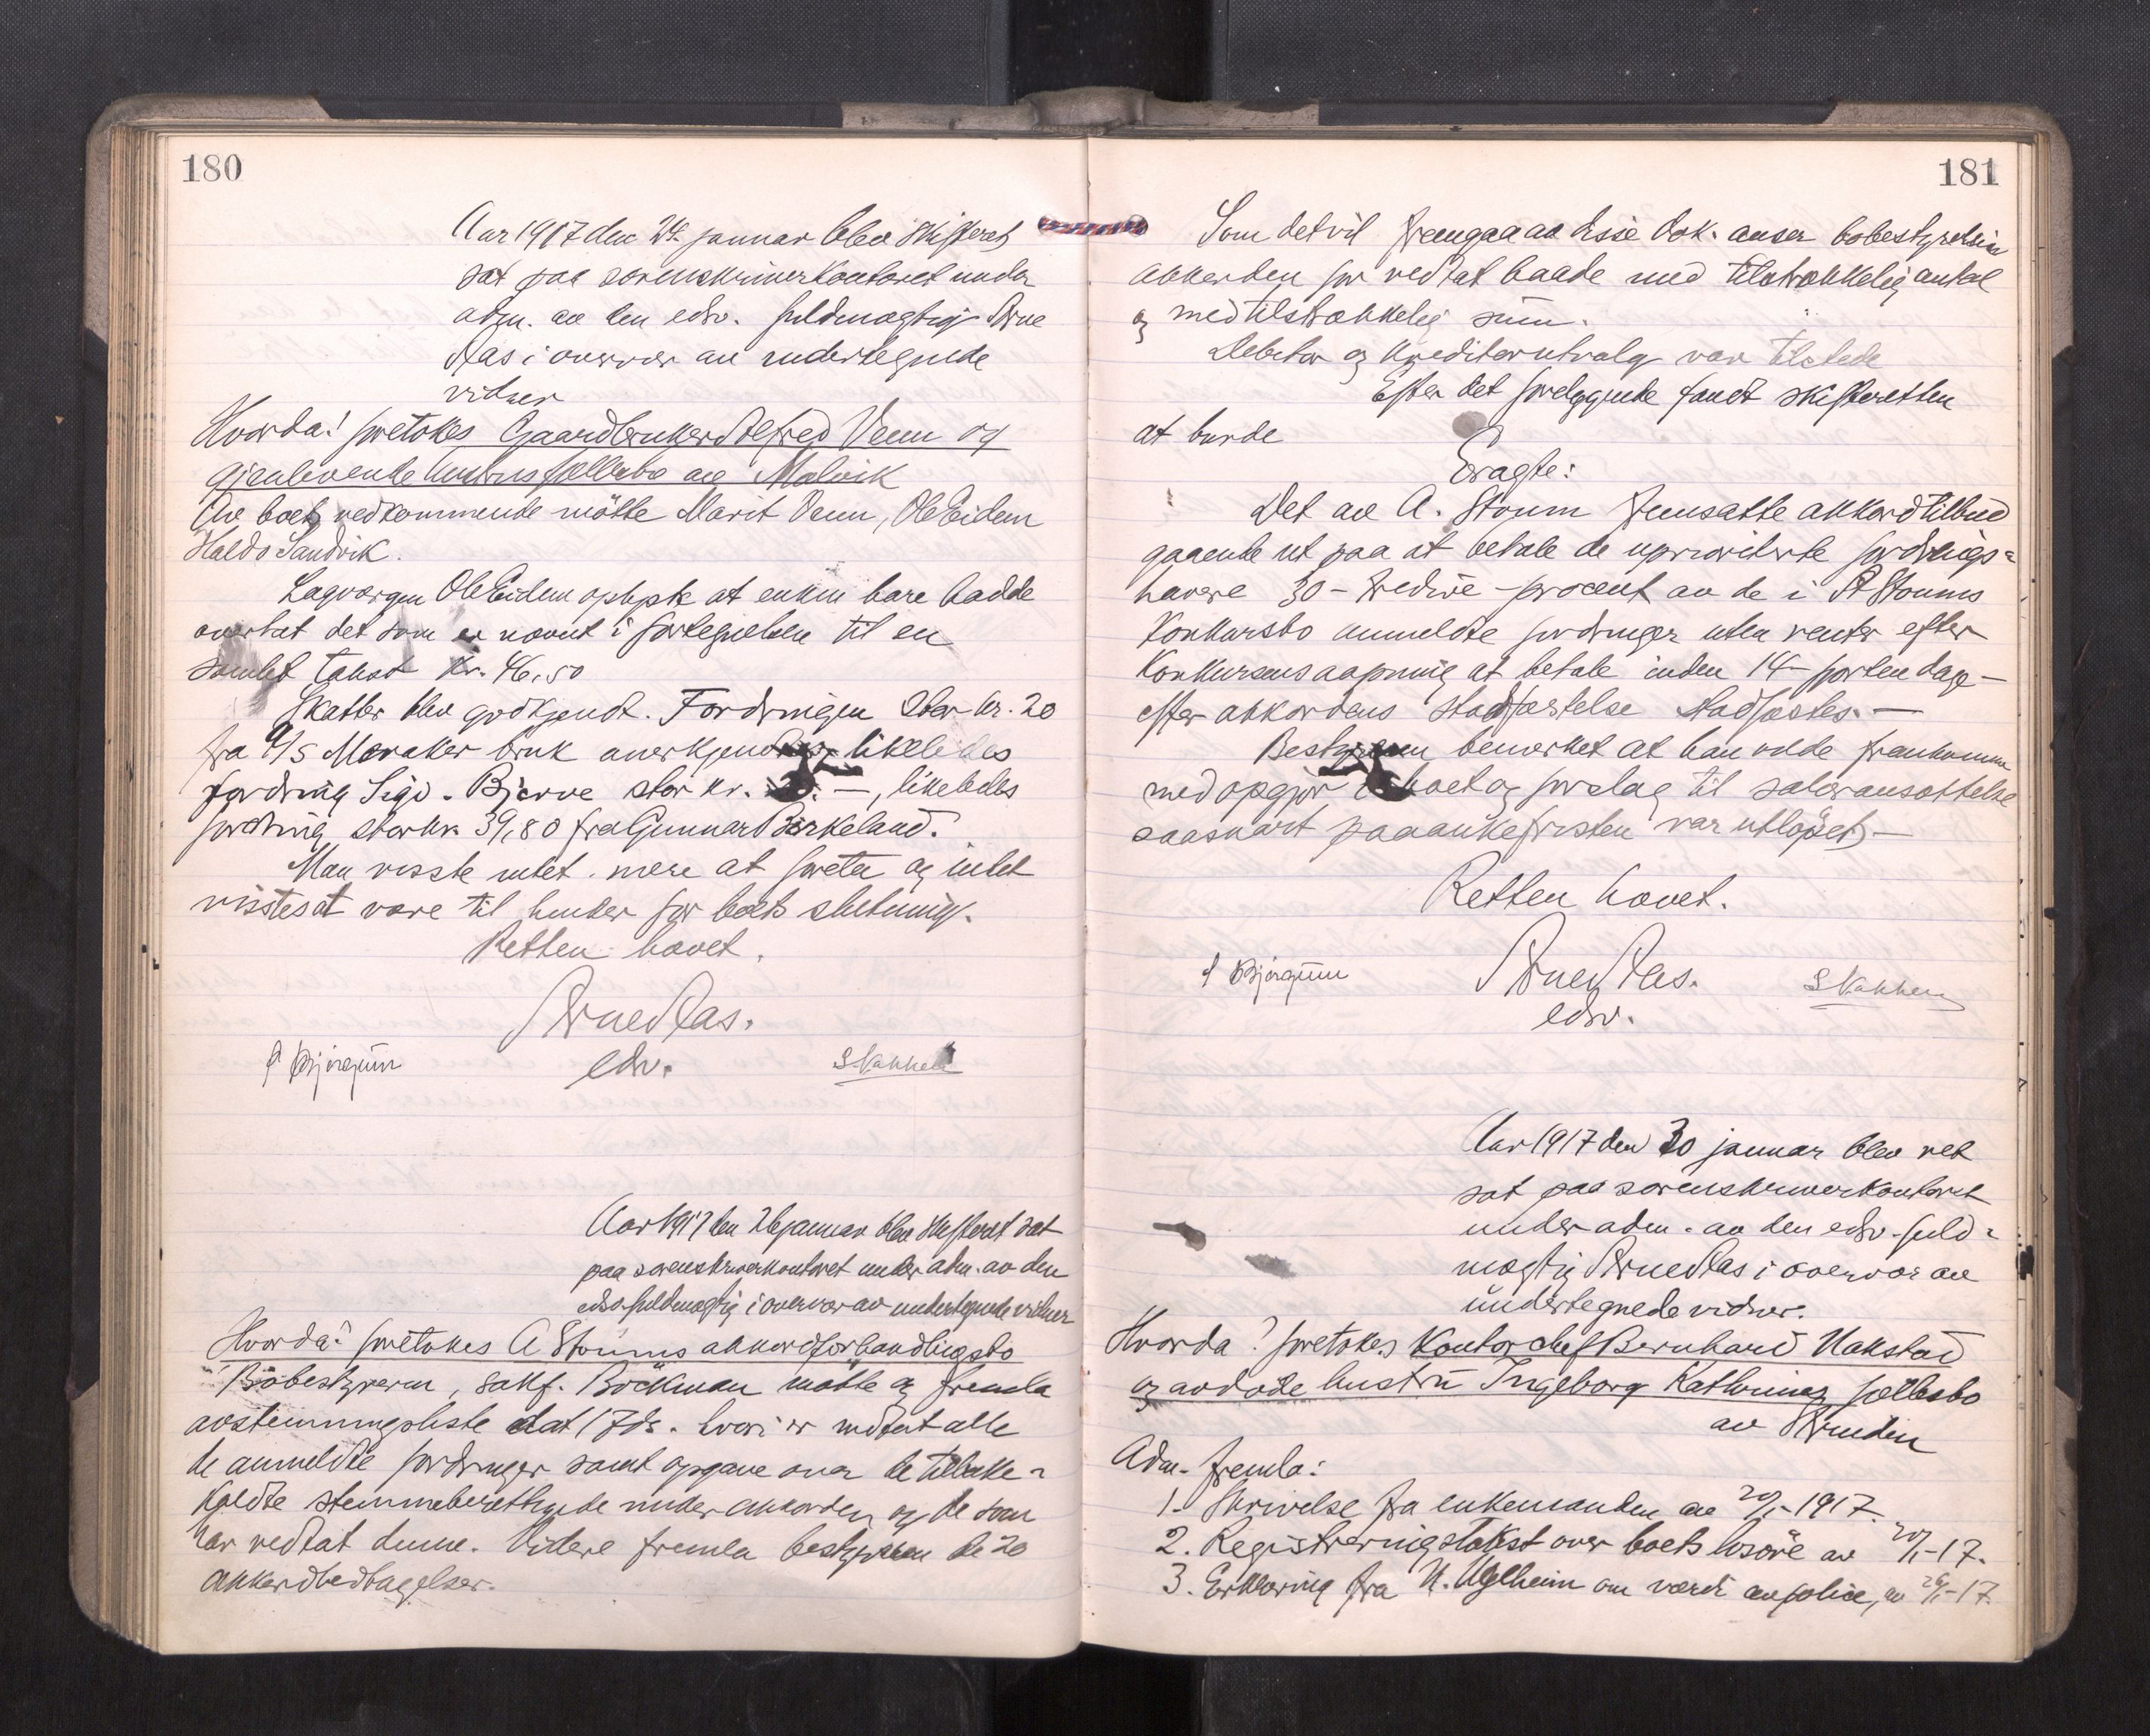 180
Aar 1917 den 24. januar blev skifteret
sat paa sorenskriverkontoret under
adm. av den edsv. fuldmægtig Arne
Aas i overvær av undertegnede
vidner
Hvorda! foretokes Gaardbruker Alfred Venn og
gjenlevende hustrus fællesbo av Malvik
Av boets vedkommende mötte Marit Venn, Ole Eidem
Haldo Sandvik.
Lagvergen Ole Eidem oplyste at enken bare hadde
overtat det som er nævnt i fortegnelsen til en
samlet takst kr. 46,50
Skatter blev godkjendt. Fordringen stor kr. 20
fra A/S Meraker bruk anerkjendtes, likeledes
fordring Sigv. Bjerve stor kr. —, likeledes
fordring stor kr. 39,80 fra Gunnar Birkeland.
Man visste intet mere at foreta og intet
vistes at være til hinder for boets slutning.
Retten hævet.
Arne Aas.
edsv.
Bjørgum
S Nakken
Aar 1917 den 26 januar blev skifteret sat
paa sorenskriverkontoret under adm. av den
edsv. fuldmægtig i overvær av undertegnede vidner
Hvorda? foretokes A Stoums akkordforhandlingsbo
Bobestyreren, sakf. Böckman mötte og fremla
avstemningsliste dat 17 ds. hvori er indtat alle
de anmeldte fordringer samt opgave over de tilbake-
holdte stemmeberettigede under akkorden og de som
har vedtat denne. Videre fremla bestyreren de 20
akkordvedtagelser.
181
Som det vil fremgaa av disse dok. anser bobestyrelsen
akkorden for vedtat baade med tilstrækkelig antal
og med tilstrækkelig sum.
Debitor og kreditorutvalg var tilstede
Efter det foreliggende fandt skifteretten
at burde
Eragte:
Det av A. Stoum fremsatte akkordtilbud
gaaende ut paa at betale de uprioriterte fordrings-
havere 30 - tredive - procent av de i A Stoums
konkursbo anmeldte fordringer uten renter efter
konkursens aapning at betale inden 14 - fjorten dage -
efter akkordens stadfæstelse stadfæstes. —
Bestyreren bemerket at han vilde fremkomme
med opgjør i boet og forslag til salæransættelse
saasnart paaankefristen var utløpet, —
Retten hævet.
Bjørgum
Arne Aas.
edsv.
S Nakken
Aar 1917 den 30 januar blev ret
sat paa sorenskriverkontoret
under adm. av den edsv. fuld-
mægtig Arne Aas i overvær av
undertegnede vidner.
Hvorda? foretokes Kontorchef Bernhard Hakstad
og avdøde hustru Ingeborg Kathrines fællesbo
av Strinden
Adm. fremla:
1. Skrivelse fra enkemanden av 20/1-1917.
2. Registreringstakst over boets løsöre av 20/1-17.
3. Erklæring fra om værdi av police, av 26/1-17.